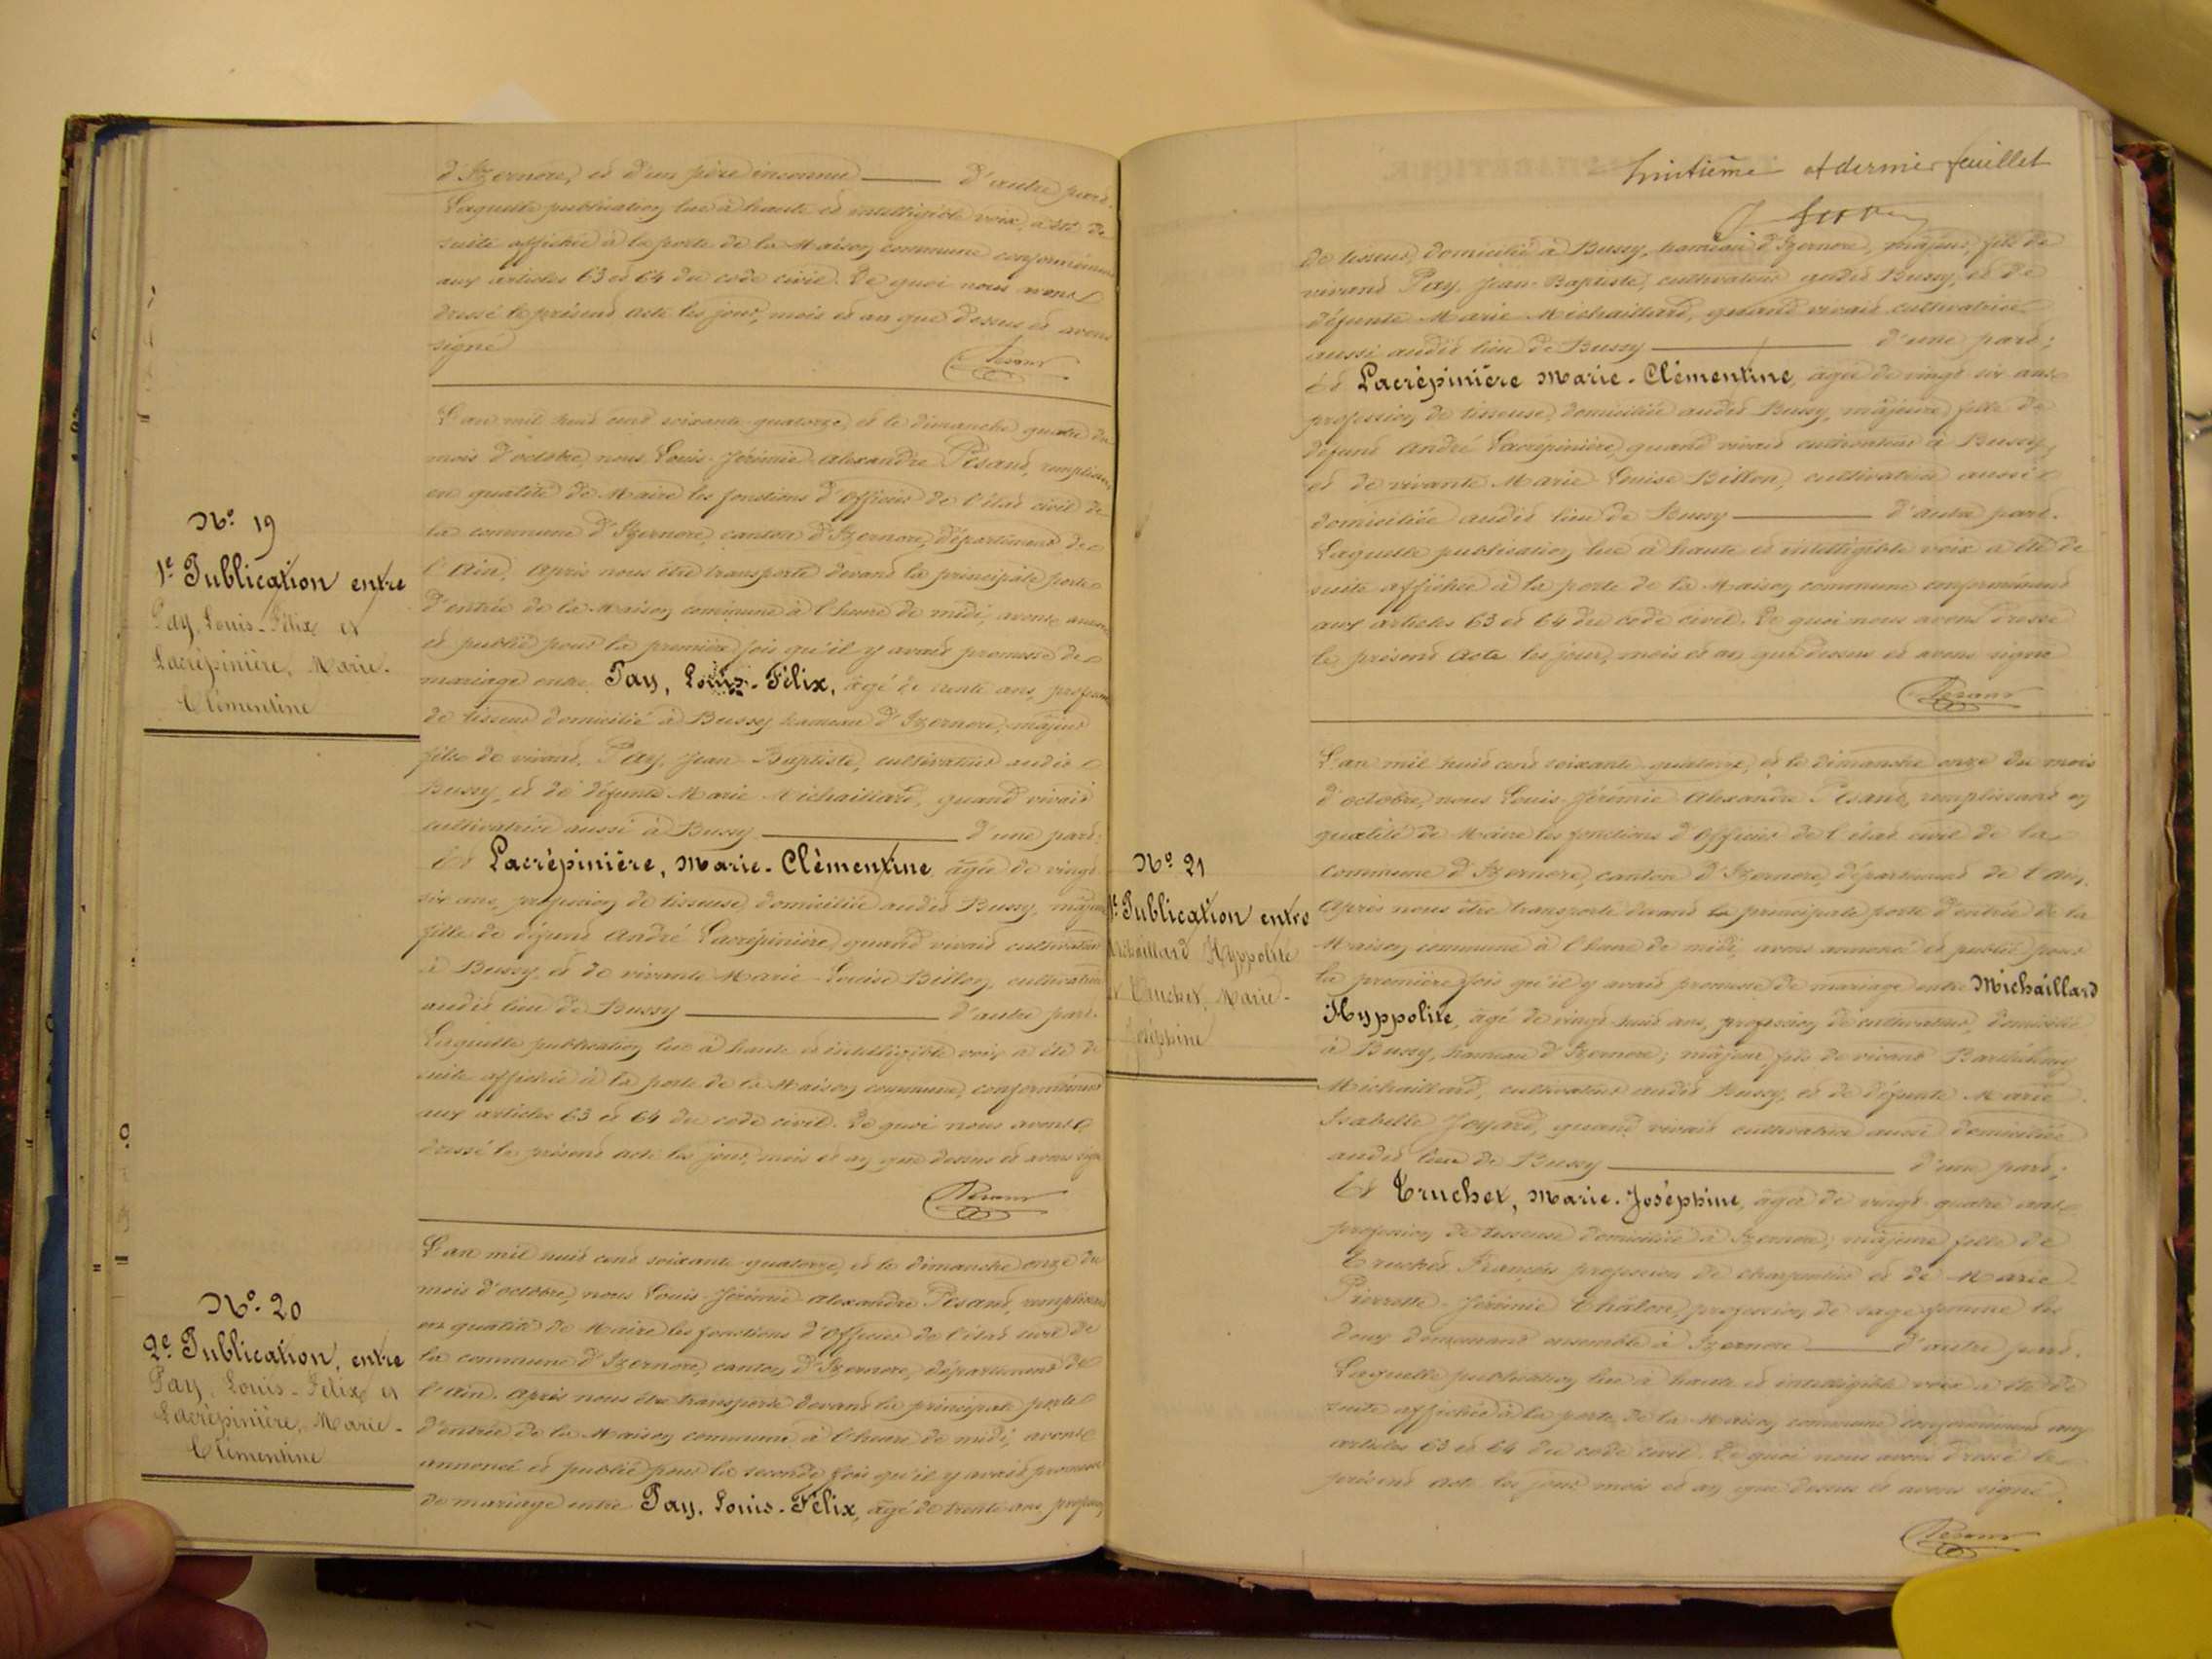 d'Izernore, et d'un père inconnu ——— d'autre part.
Laquelle publication lue à haute et intelligible voix, a été de
suite affichée à la porte de la Maison commune conformément
aux articles 63 et 64 du code civil. De quoi nous avons
dressé le présent acte les jour, mois et an que dessus et avons
signé
Pesant
N.º 19
1.e Publication entre
Pay, Louis-Félix et
Lacrépinière, Marie-
Clémentine
L'an mil huit cent soixante quatorze, et le dimanche quatre du
mois d'octobre, nous Louis-Jérémie Alexandre Pesant, remplissant
en qualité de Maire les fonctions d'Officier de l'état civil de
la commune d'Izernore, canton d'Izernore, département de
l'Ain. Après nous être transporté devant la principale porte
d'entrée de la Maison commune à l'heure de midi, avons annoncé
et publié pour la première fois qu'il y avait promesse de
mariage entre Pay, Louis-Félix, âgé de trente ans, profession
de tisseur domicilié à Bussy hameau d'Izernore, majeur
fils de vivant Pay, Jean-Baptiste, cultivateur audit
Bussy, et de défunte Marie Michaillard, quand vivait
cultivatrice aussi à Bussy ——— d'une part;
Et Lacrépinière, Marie-Clémentine âgée de vingt
six ans, profession de tisseuse, domiciliée audit Bussy, majeure
fille de défunt André Lacrépinière, quand vivait cultivateur
à Bussy, et de vivante Marie-Louise Billon, cultivatrice
audit lieu de Bussy ——— d'autre part.
Laquelle publication lue à haute et intelligible voix a été de
suite affichée à la porte de la Maison commune, conformément
aux articles 63 et 64 du code civil. De quoi nous avons
dressé le présent acte les jour, mois et an que dessus et avons signé
Pesant
N.º 20
2.e Publication, entre
Pay, Louis-Félix et
Lacrépinière, Marie-
Clémentine
L'an mil huit cent soixante-quatorze, et le dimanche onze du
mois d'octobre, nous Louis-Jérémie Alexandre Pesant, remplissant
en qualité de Maire les fonctions d'Officier de l'état civil de
la commune d'Izernore, canton d'Izernore, département de
l'Ain. Après nous être transporté devant la principale porte
d'entrée de la Maison commune à l'heure de midi, avons
annoncé et publié pour la seconde fois qu'il y avait promesse
de mariage entre Pay, Louis-Félix, âgé de trente ans, profession
huitième et dernier feuillet
de tisseur, domicilié à Bussy, hameau d'Izernore, majeur, fils de
vivant Pay, Jean-Baptiste, cultivateur audit Bussy, et de
défunte Marie Michaillard, quand vivait cultivatrice
aussi audit lieu de Bussy ——— d'une part;
Et Lacrépinière Marie-Clémentine, âgée de vingt six ans
profession de tisseuse, domiciliée audit Bussy, majeure fille de
défunt André Lacrépinière, quand vivait cultivateur à Bussy,
et de vivante Marie Louise Billon, cultivatrice aussi
domiciliée audit lieu de Bussy ——— d'autre part.
Laquelle publication lue à haute et intelligible voix a été de
suite affichée à la porte de la Maison commune conformément
aux articles 63 et 64 du code civil. De quoi nous avons dressé
le présent acte les jour, mois et an que dessus et avons signé
Pesant
N.º 21
1.e Publication entre
Michaillard Hyppolite
et Truchet, Marie-
Joséphine
L'an mil huit cent soixante-quatorze, et le dimanche onze du mois
d'octobre, nous Louis-Jérémie Alexandre Pesant, remplissant en
qualité de Maire les fonctions d'Officier de l'état civil de la
commune d'Izernore, canton d'Izernore, département de l'Ain.
Après nous être transporté devant la principale porte d'entrée de la
Maison commune à l'heure de midi, avons annoncé et publié pour
la première fois qu'il y avait promesse de mariage entre Michaillard
Hyppolite, âgé de vingt-huit ans, profession de cultivateur, domicilié
à Bussy, hameau d'Izernore; majeur, fils de vivant Barthélemy
Michaillard, cultivateur audit Bussy, et de défunte Marie
Isabelle Joyard, quand vivait cultivatrice aussi domiciliée
audit lieu de Bussy ——— d'une part;
Et Truchet, Marie-Joséphine, âgée de vingt-quatre ans
profession de tisseuse domiciliée à Izernore; majeure fille de
Truchet François profession de charpentier et de Marie-
Pierrette-Jérémie Châlon, profession de sage-femme les
deux demeurant ensemble à Izernore ——— d'autre part.
Laquelle publication lue à haute et intelligible voix a été de
suite affichée à la porte de la Maison commune conformément aux
articles 63 et 64 du code civil. De quoi nous avons dressé le
présent acte les jour mois et an que dessus et avons signé.
Pesant